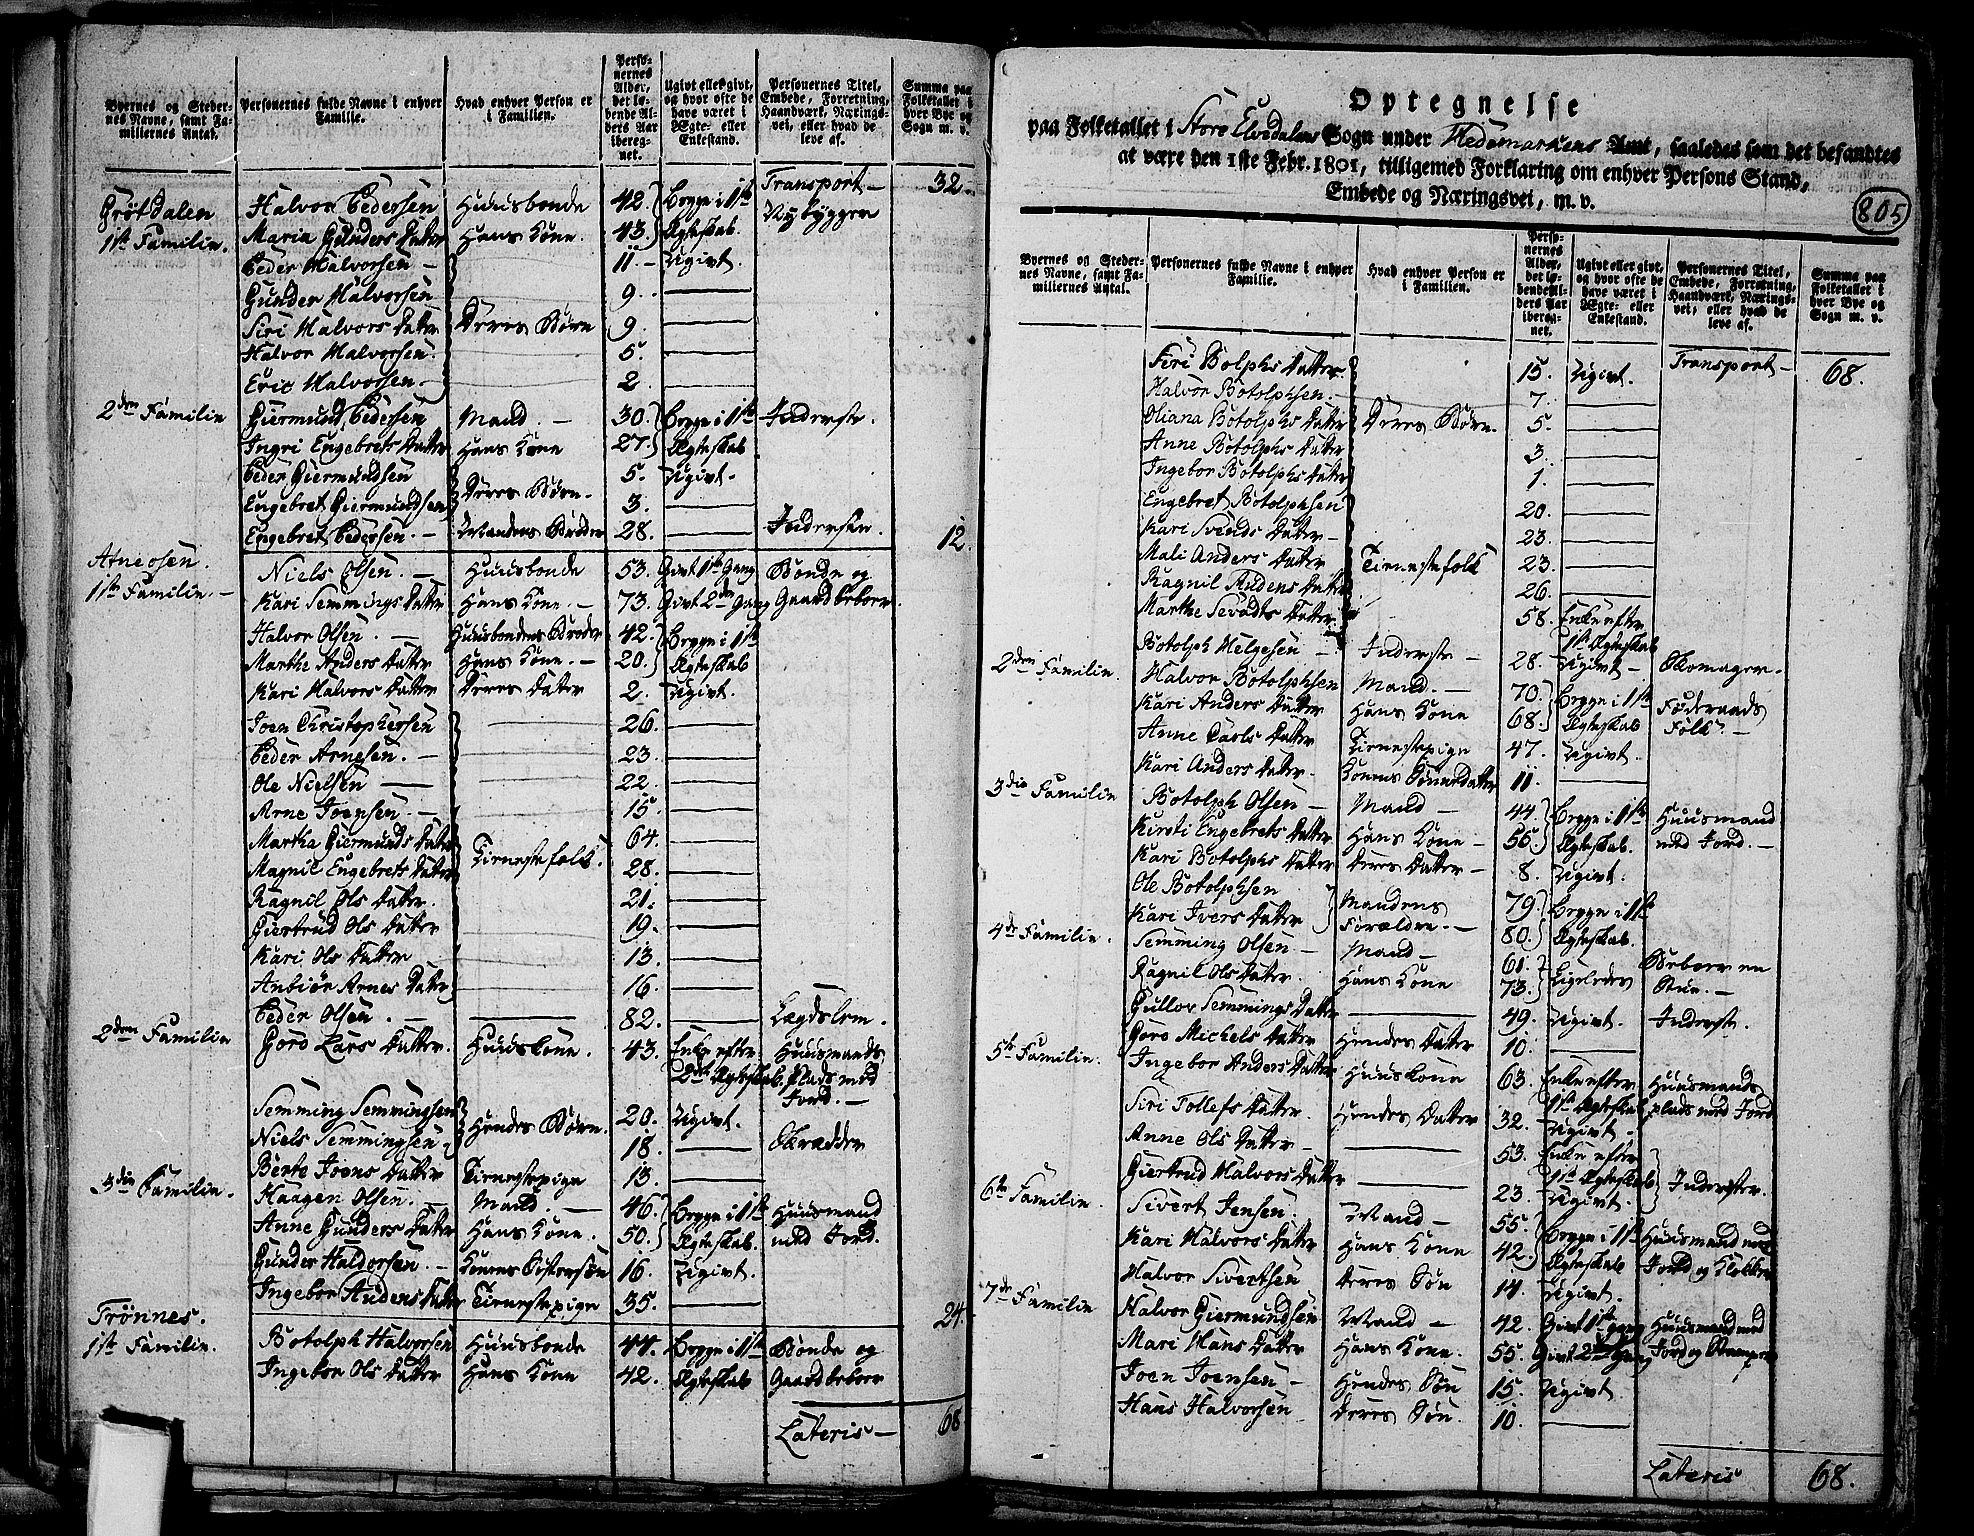 Byernes og Steder-
nes Navne, samt Fa-
miliernes Antal.
Personernes fulde Navne i enhver
Familie.
Hvad enhver Person er
i Familien.
Perso-
nernes
Alder,
det lø-
bende Al-
ders Aar
ibereg-
net.
Ugivt eller givt,
og hvor ofte de
have været i
Ægte- eller
Enkestand.
Personernes Titel,
Embede, Forretning,
Haandværk, Nærings-
vei, eller hvad de
leve af.
Summa paa
Folketallet i
hver Bye og
Sogn m. v.
Transport - 32.
Grötdalen Halvor Pedersen Huusbonde 42. Begge i 1ste Nybyggere
1ste Familie. Maria Gunders Datter Hans Kone. 43. Ægteskab.
Peder Halvorsen - 11. - Ugivt.
Gunder Halvorsen 9.
Siri Halvors Datter Deres Börn 9.
Halvor Halvorsen. 5.
Eric Halvorsen. 2.
2den Familie Giermund Pedersen Mand. - 30. Begge i 1ste Inderste.
Ingri Engebrets Datter Hans Kone 27. Ægteskab
Peder Giermundsen Deres Börn. 5. Ugivt.
Engebret Giermundsen 3.
Engebret Pedersen. - Mandens Broder 28. Indersten. 12.
Atneosen.
1ste Familie. - Niels Olsen. - Huusbonde 53. Givt 1ste Gang Bonde og
Kari Semmings Datter Hans Kone. - 73. Givt 2den Gang Gaardbeboer.
Halvor Olsen. - Huusbondens Broder 42. Begge i 1ste
Marthe Anders Datter Hans Kone. - 20. Ægteskab
Kari Halvors Datter Deres Datter 2. Ugivt.
Joen Christophersen 26.
Peder Arnesen. - 23.
Ole Nielsen - 22.
Arne Joensen. - 15.
Martha Giermunds Datter Tienestefolk. 64.
Magnil Engebrets Datter 28.
Ragnil Ols Datter. 21.
Giertrud Ols Datter 19.
Kari Ols Datter 13.
Anbiör Arnes Datter 16.
Peder Olsen. - 82. Lægdslem.
2den Familie Goro Lars Datter. Huuskone. 43. Enke efter Huusmands
2det Ægteskab. Plads med
Jord. -
Semming Semmingsen Hendes Börn. 20. Ugivt.
Niels Semmingsen 18. Skrædder
Berte Joens Datter Tienestepige 13.
3die Familie. Haagen Olsen. - Mand. - 46. Begge i 1ste Huusmand
Anne Gunders Datter Hans Kone. 50. Ægteskab. med Jord.
Gunder Haldorsen. - Konens Söstersön 16. Ugivt.
Ingebor Audens Datter Tienestepige 35. 24.
Trönnes.
1ste Familie. Botolph Halvorsen Huusbonde 44. Begge i 1ste Bonde og
Ingebor Ols Datter Hans Kone 42. Ægteskab Gaardbeboer
Lateris - 68
Optegnelse
paa Folketallet i Store Elvedalens Sogn under Hedemarkens Amt, saaledes som det befandtes
at være den 1ste Febr. 1801, tilligemed Forklaring om enhver Persons Stand,
Embede og Næringsvei, m. v.
805
Byernes og Steder-
nes Navne, samt Fa-
miliernes Antal.
Personernes fulde Navne i enhver
Familie.
Hvad enhver Person er
i Familien.
Perso-
nernes
Alder,
det lø-
bende Al-
ders Aar
iberegnet.
net.
Ugivt eller givt,
og hvor ofte de
have været i
Ægte- eller
Enkestand.
Personernes Titel,
Embede, Forretning,
Haandværk, Nærings-
vei, eller hvad de
leve af.
Summa paa
Folketallet i
hver Bye og
Sogn m. v.
Siri Bolphs Datter 15. Ugivt. Transport - 68.
Halvor Botolphsen. 7.
Oliana Botolphs Datter Deres Börn. 5.
Anne Botolphs Datter 3.
Ingebor Botolphs Datter 1.
Engebret Botolphsen 20.
Kari Svends Datter - 23.
Mali Anders Datter Tienestefolk 23.
Ragnil Audens Datter 26.
Marthe Sevadts Datter 58. Enke efter
1ste Ægteskab
Botolph Helgesen - Inderste - 28. Ugivt - Skomager -
2den Familie. Halvor Botolphsen Mand. - 70. Begge i 1ste Föderaads
Kari Anders Datter Hans Kone 68. Ægteskab Folk. -
Anne Carls Datter Tienestepige 47. Ugivt.
Kari Anders Datter. Konens Sönnedatter 11.
3die Familie Botolph Olsen - Mand - 44. Begge i 1ste Huusmand
Kirsti Engebrets Datter Hans Kone - 55. Ægteskab. med Jord. -
Kari Botolphs Datter Deres Datter - 8. Ugivt.
Ole Botolphsen Mandens 79. Begge i 1ste
Kari Ivers Datter Forældre. - 80. Ægteskab.
4de Familie. Semming Olsen - Mand - 61. Ligeledes Beboer en
Ragnil Ols Datter. Hans Kone 73. Stue. -
Gullov Semmings Datter 49. Ugivt. Inderste.
Goro Michels Datter Hendes Datter 10.
5te Familie. Ingebor Anders Datter Huuskone 63. Enke efter Huusmands
1ste Ægteskab plads med Jord
Siri Tollefs Datter. Hendes Datter 32. Ugivt -
Anne Ols Datter - 53. Enke efter
1ste Ægteskab Inderster.
Giertrud Halvors Datter 23. Ugivt.
6te Familie. Sivert Jensen. Mand - 55. Begge i 1ste Huusmand med
Kari Halvors Datter Hans Kone 42. Ægteskab Jord og Klokker
Halvor Sivertsen Deres Sön 14. Ugivt.
7de Familie Halvor Giermundsen Mand - 42. Givt 1ste gang Huusmand med
Mari Hans Datter Hans Kone. 55. Givt 2den Gang Jord og
Joen Joensen - Hendes Sön 15. Ugivt
Hans Halvorsen Deres Sön. 10.
Lateris 68.